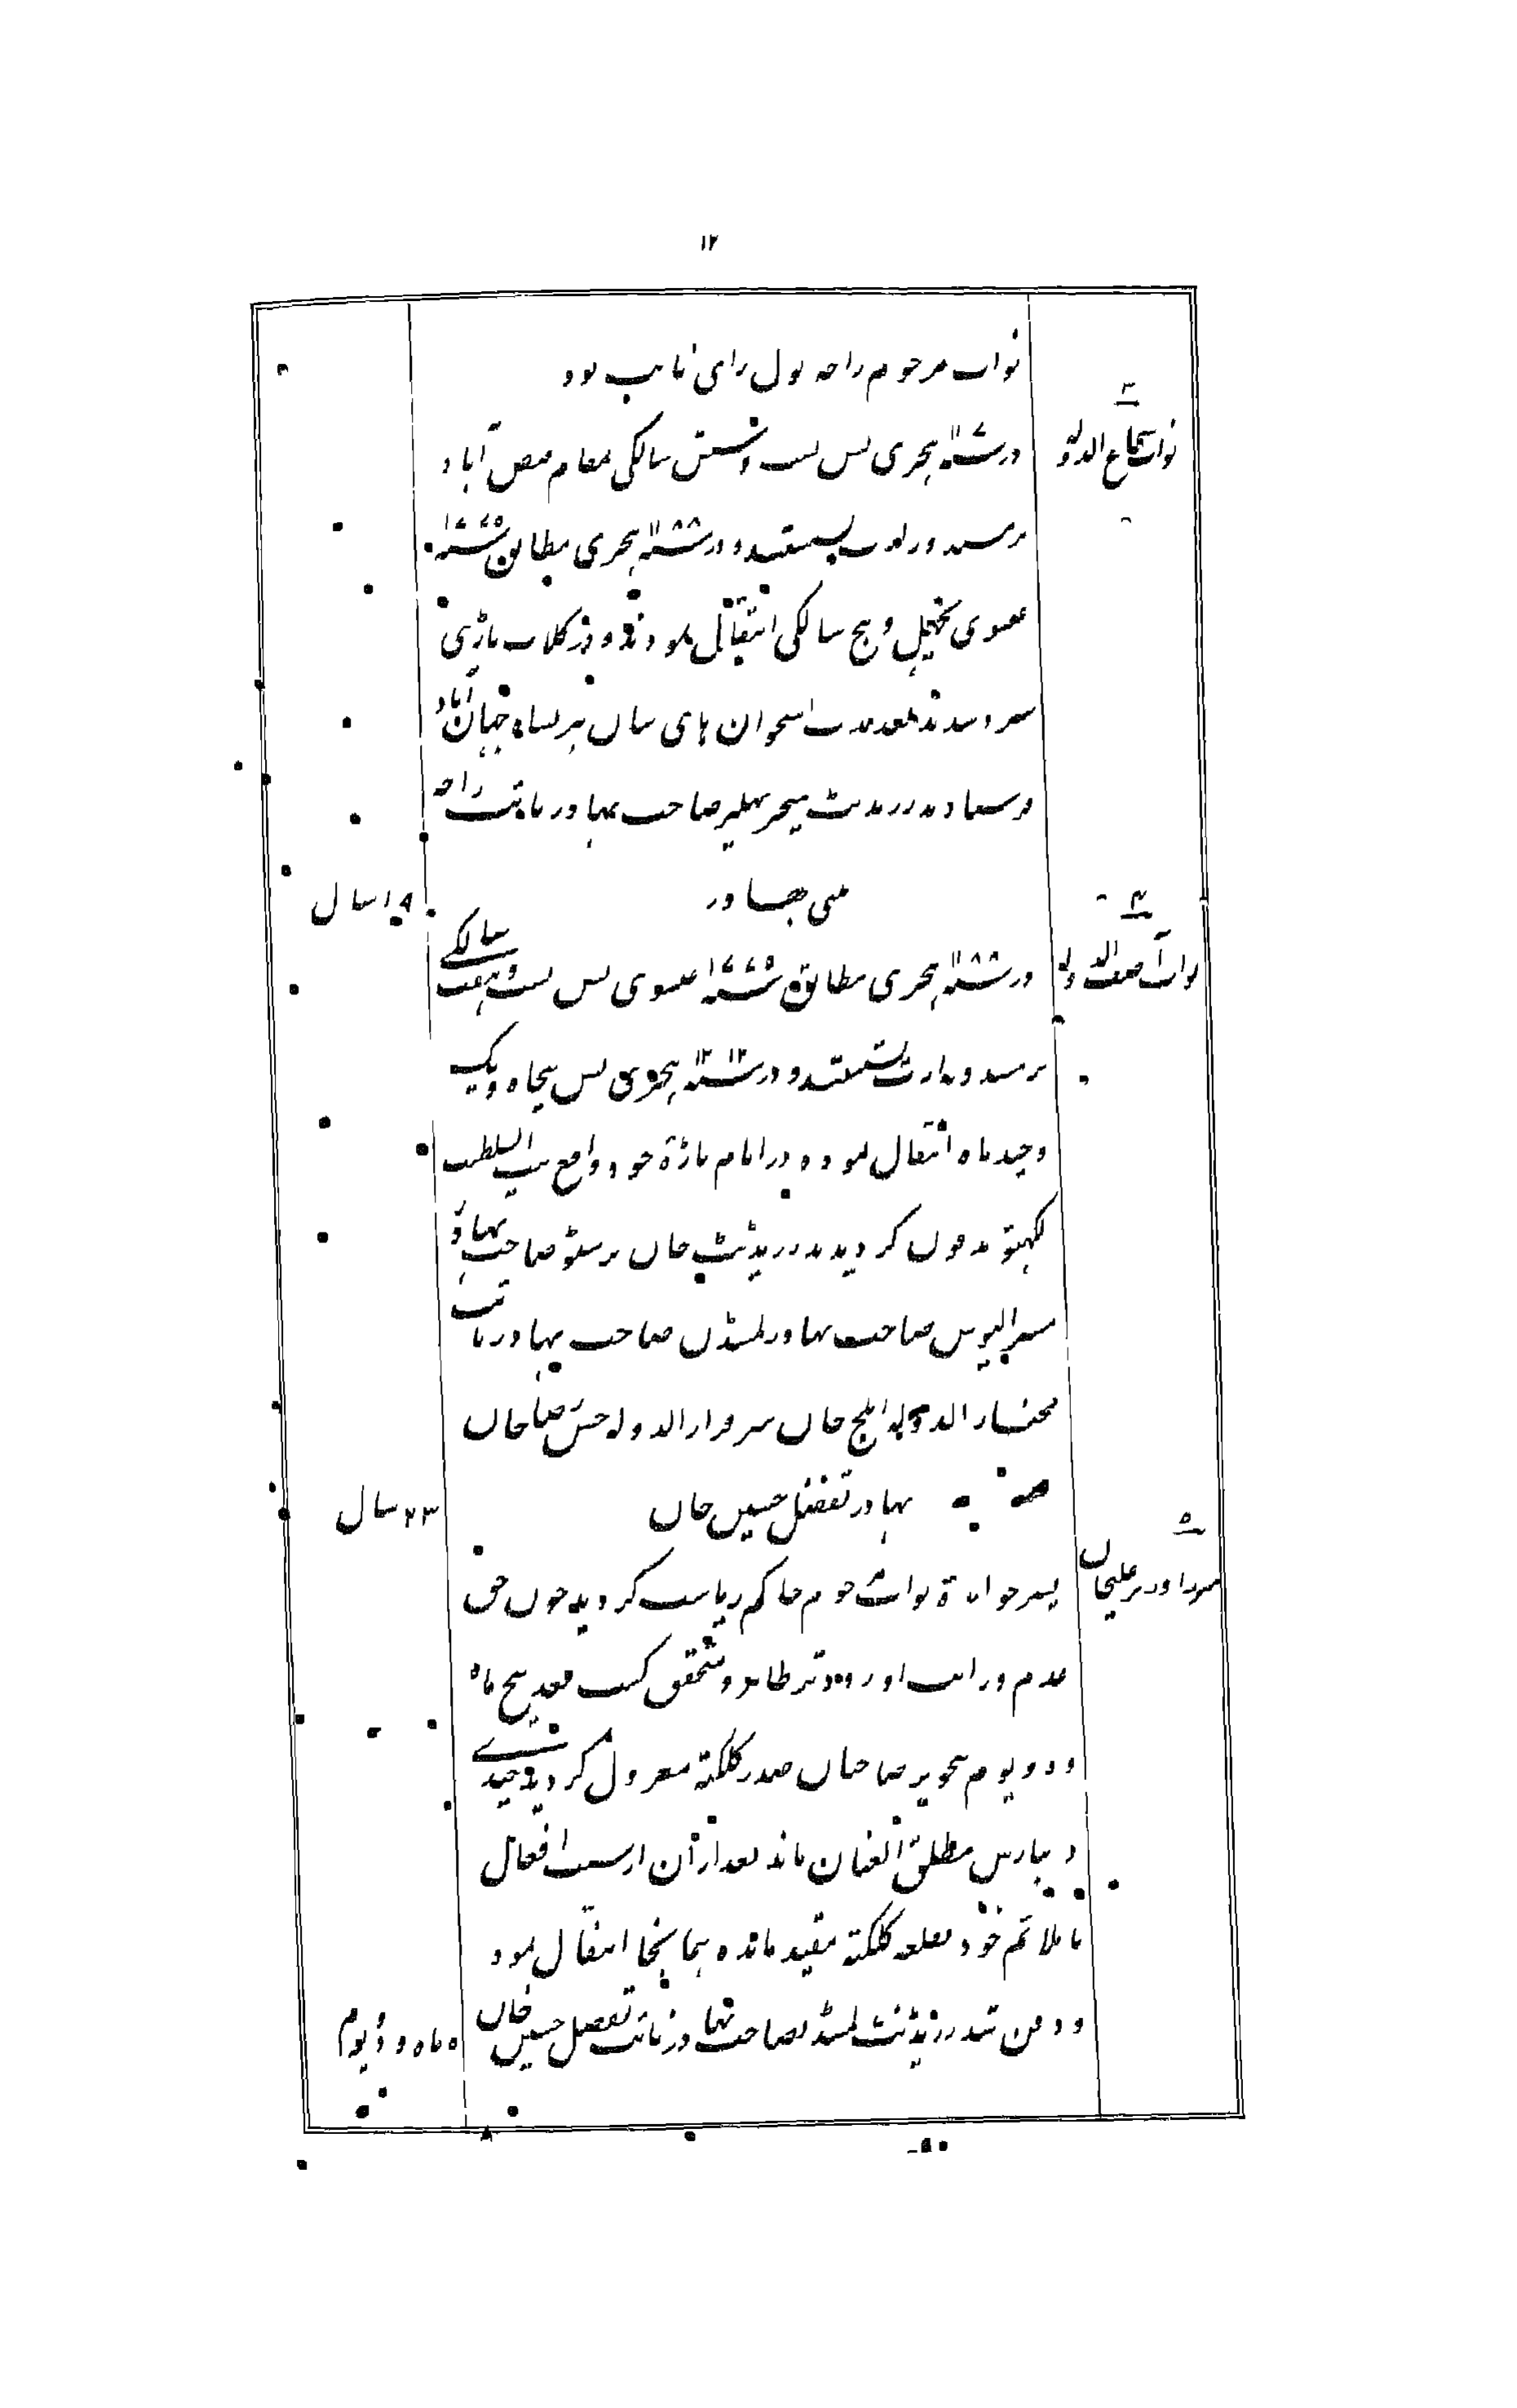 ۱۲
نواب مرحوم راجه نول رای نایب بود
۳
نواب شجاع الدوله
در سنه ۱۱۷ هجری بسن بست و شش سالگی بمقام فیض آباد
بر مسند وزارت نشستند و در سنه ۱۱۸۸ هجری مطابق سنه ۱۷۷۵
عیسوی بچهل و پنج سالگی انتقال نمودند و در گلاب باڑی
سپرد شدند بعد مدت استخوان های شان بشاه جهان آباد
فرستادند رزیدنٹ میجر صاحب بهادر نایب راجه
بینی بهادر
۱۹ سال
۴
نواب آصف الدوله
در سنه ۱۱۸۸ هجری مطابق سنه ۱۷۷۵ عیسوی بسن بست و هفت سالگے
بر مسند وزارت نشستند و در سنه ۱۲۱۲ هجری بسن پنجاه و یک
و چند ماه انتقال نموده در امام باڑۀ خود واقع بیت السلطنت
لکهنؤ مدفون گردیدند رزیڈنٹ جان برسٹو صاحب بهادر
صاحب بهادر لمسڈن صاحب بهادر نایب
مختار الدوله ایلچ خان سرفراز الدوله حسن رضا خان
بهادر تفضل حسین خان
۲۳ سال
۵
میرزا وزیر علیخان
پسر خوانده نواب مرحوم حاکم ریاست گردید چون حق
عدم وراثت او زودتر ظاهر و متحقق گشت بعد پنج ماه
و دو یوم بتجویز صاحبان صدر کلکته معزول گردید و چندے
در بنارس مطلق العنان ماند بعد از آن از سبب افعال
ناملائم خود بقلعه کلکته مقید مانده بهمانجا انتقال نمود
و دفن شد رزیڈنٹ لمسڈن صاحب بهادر نایب تفضل حسین خان
۵ ماه و دو یوم